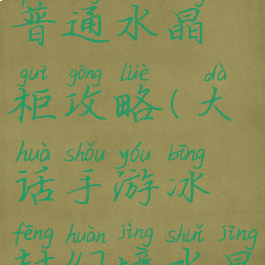 普通水晶
guì gōng lüè dà
柜攻略(大
huà shǒu yóu bīng
话手游冰
fēng huàn jìng shuǐ jīng
封幻境水晶